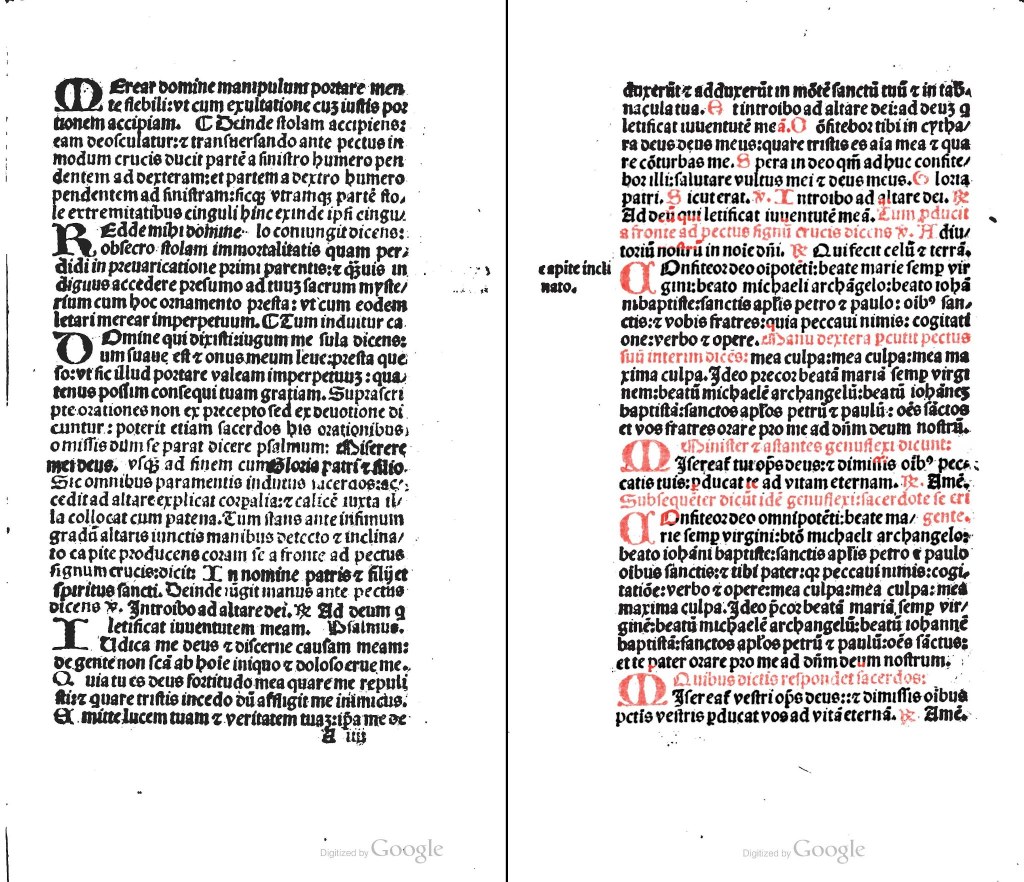 MErear domine manipulum portare men
te flebili: vt cum exultatione cuz iustis por
tionem accipiam. ℂ Deinde stolam accipiens:
eam deosculatur: ⁊ transuersando ante pectus in
modum crucis ducit partē a sinistro humero pen
dentem ad dexteram: et partem a dextro humero
pendentem ad sinistram: sicqꝫ vtramqꝫ partē sto/
le extremitatibus cinguli hinc exinde ipsi cingu/
REdde mihi domine lo coniungit dicens:
obsecro stolam immortalitatis quam per/
didi in preuaricatione primi parentis: ⁊ q̄ꝫuis in
dignus accedere presumo ad tuuz sacrum myste/
rium cum hoc ornamento presta: vt cum eodem
letari merear imperpetuum. ℂ Tum induitur ca
DOmine qui dixisti: iugum me sula dicens:
um suaue est ⁊ onus meum leue: presta que
so: vt sic illud portare valeam imperpetuuz: qua/
tenus possim consequi tuam gratiam. Suprascri
pte orationes non ex precepto sed ex deuotione di
cuntur: poterit etiam sacerdos his orationibus
omissis dum se parat dicere psalmum: Miserere
mei deus. vsqꝫ ad finem cum Gloria patri ⁊ filio.
Sic omnibus paramentis indutus sacerdos: ac/
cedit ad altare explicat corpalia: ⁊ calicē iuxta il/
la collocat cum patena. Tum stans ante infimum
gradū altaris iunctis manibus detecto ⁊ inclina/
to capite producens coram se a fronte ad pectus
signum crucis: dicit: In nomine patris ⁊ filij et
spiritus sancti. Deinde iūgit manus ante pectus
dicens ℣. Introibo ad altare dei. ℟ Ad deum q
letificat iuuentutem meam. Psalmus.
IUdica me deus ⁊ discerne causam meam:
de gente non scā ab hoīe iniquo ⁊ doloso erue me.
Quia tu es deus fortitudo mea quare me repuli
sti: ⁊ quare tristis incedo dū affligit me inimicus.
Emitte lucem tuam ⁊ veritatem tuaz: ip̄a me de
A iiij
duxerūt ⁊ adduxerūt in mōtē sanctū tuū ⁊ in tab.
nacula tua. Et introibo ad altare dei: ad deuz q
letificat iuuentutē meā. Cōfitebor tibi in cytha/
ra deus deus meus: quare tristis es aīa mea ⁊ qua
re cōturbas me. Spera in deo qm̄ adhuc confite/
bor illi: salutare vultus mei ⁊ deus meus. Gloria
patri. Sicut erat. ℣. Introibo ad altare dei. ℟
Ad deū qui letificat iuuentutē meā. Tum ꝓducit
a fronte ad pectus signū crucis dicens ℣. Adiu/
toriū nostrū in noīe dn̄i. ℟ Qui fecit celū ⁊ terrā.
capite incli
nato.
COnfiteor deo oīpotēti: beate marie semꝑ vir
gini: beato michaeli archāgelo: beato iohā
ni baptiste: sanctis apl̄is petro ⁊ paulo: oībꝰ san/
ctis: ⁊ vobis fratres: quia peccaui nimis: cogitati
one: verbo ⁊ opere. Manu dextera ꝑcutit pectus
suū interim dicēs: mea culpa: mea culpa: mea ma
xima culpa. Ideo precor beatā mariā semꝑ virgi
nem: beatū michaelē archangelū: beatū iohānes
baptistā: sanctos apl̄os petrū ⁊ paulū: oēs sāctos
et vos fratres orare pro me ad dn̄m deum nostrū.
Minister ⁊ astantes genuflexi dicunt:
MIsereat̄ tui op̄s deus: ⁊ dimissis oībꝰ pecc/
catis tuis: ꝑducat te ad vitam eternam. ℟. Amē.
Subsequēter dicūt idē genuflexi: sacerdote se eri
COnfiteor deo omnipotēti: beate ma/ gente.
rie semꝑ virgini: btō michaeli archangelo:
beato iohāni baptiste: sanctis apl̄is petro ⁊ paulo
oībus sanctis: ⁊ tibi pater: qꝛ peccaui nimis: cogi/
tatiōe: verbo ⁊ opere: mea culpa: mea culpa: mea
maxima culpa. Ideo p̄cor beatā mariā semꝑ vir/
ginē: beatū michaelē archangelū: beatū iohannē
baptistā: sanctos apl̄os petrū ⁊ paulū: oēs sāctus:
et te pater orare pro me ad dn̄m deum nostrum.
Quibus dictis respondet sacerdos:
MIsereat̄ vestri op̄s deus: ⁊ dimissis oībus
pctīs vestris ꝑducat vos ad vitā eternā. ℟ Amē.
Digitized by Google
Digitized by Google